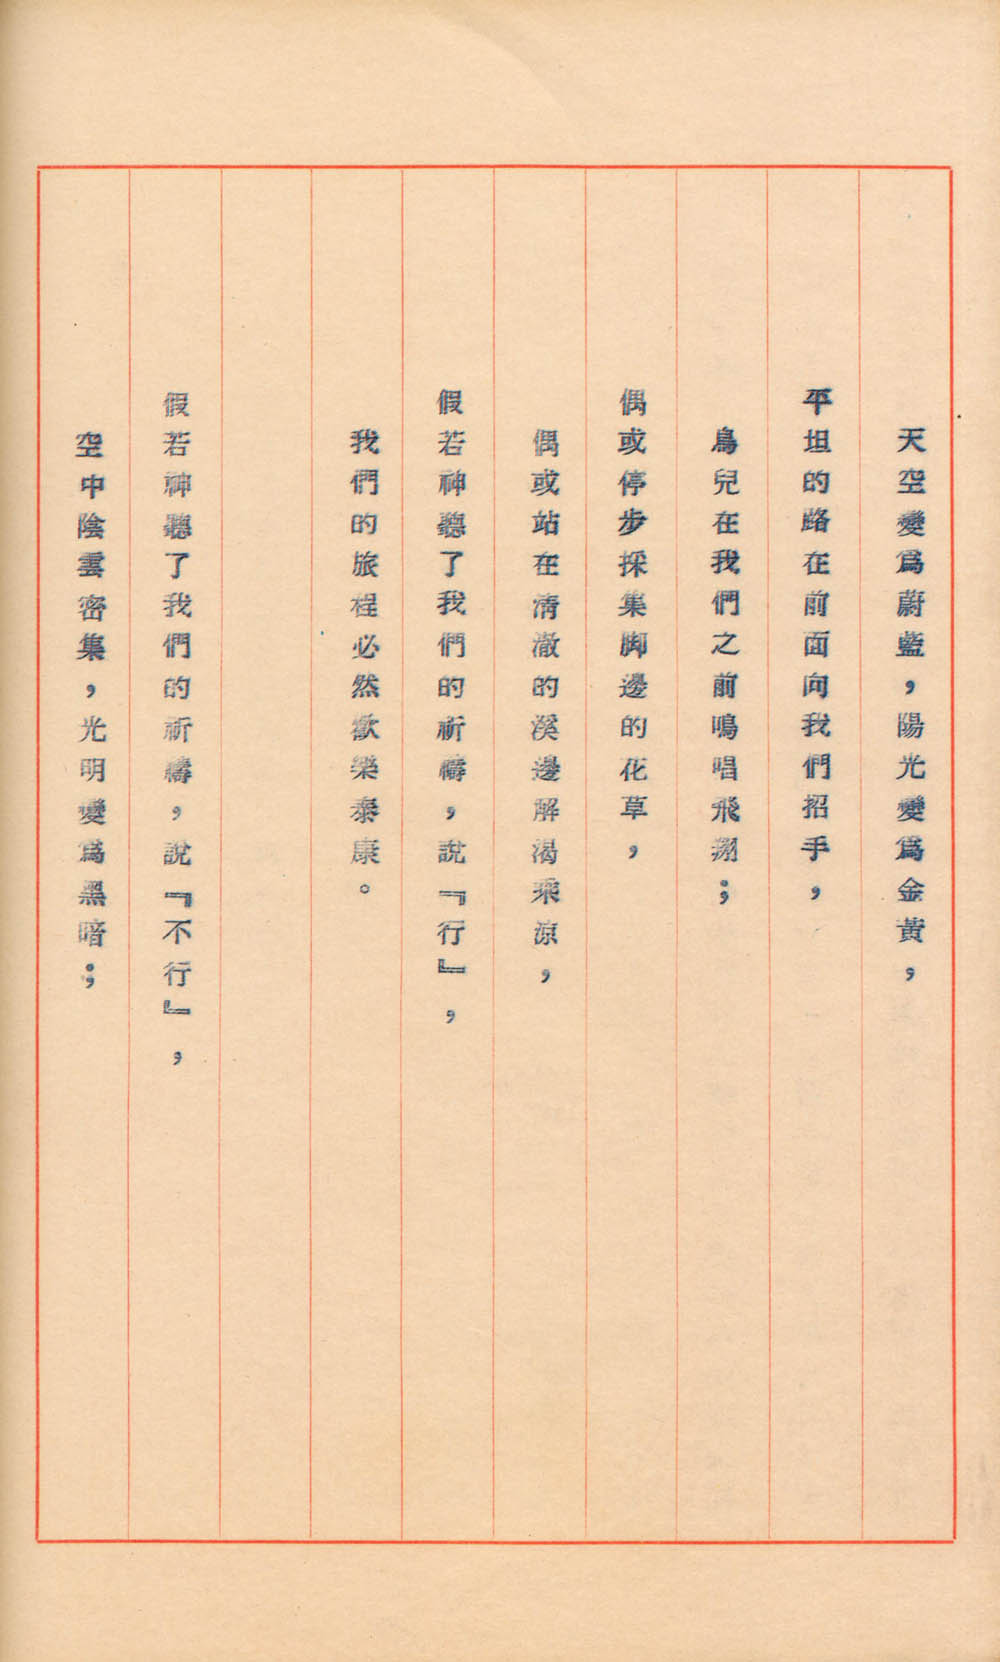 天空變爲蔚藍，陽光變爲金黃，
平坦的路在前面向我們招手，
鳥兒在我們之前鳴唱飛翔；
偶或停步採集脚邊的花草，
偶或站在清澈的溪邊解渴乘凉，
假若神聽了我們的祈禱，說『行』，
我們的旅程必然歡樂泰康。
假若神聽了我們的祈禱，說『不行』，
空中陰雲密集，光明變爲黑暗；